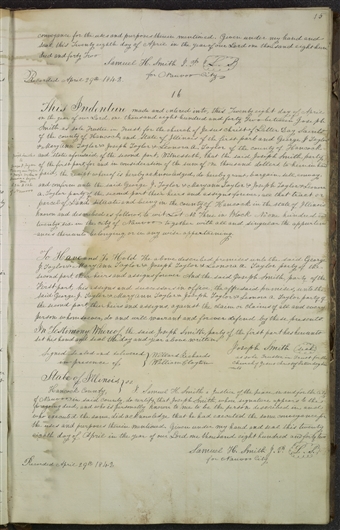 conveyance for the uses and purposes therein mentioned. Given under my hand and
seal this Twenty eighth day of April in the year of our Lord one thousand eight hun
dred and forty Two
Samuel H. Smith J. P. L. S.
for Nauvoo City
Recorded April 29th 1842.
16
This Indenture made and entered into, this Twenty eight day of
in the year of our Lord one thousand eight hundred and forty Two between Joseph
Smith as sole Trustee in Trust for the church of Jesus Christ of Latter Day Saints,
of the County of Hancock and State of Illinois of the first part and George J. Taylor
Mary Ann Taylor & Joseph Taylor & Leonora A. Taylor of the County of Hancock
and State aforesaid of the second part, Witnesseth, that the said Joseph Smith, party
of the first part for and in consideration of the sum of one thousand dollars to him in hand
paid, the receipt whereof is hereby acknowledged, do hereby grant, bargain, sell, convey
and confirm unto the said George J. Taylor & Mary Ann Taylor & Joseph Taylor & Leonora
A. Taylor party of the second part their heirs and assigns forever all that tract or
parcel of Land situate and being in the County of Hancock in the state of Illinois
known and described as follows to wit Lot
in the city of Nauvoo together with all and singular the appurten
ances thereunto belonging or in any wise appertaining.
To Have and To Hold the above described premises unto the said George
J. Taylor & Mary Ann Taylor & Joseph Taylor & Leonora A. Taylor party of the
second part their heirs and assigns forever. And the said Joseph Smith party of the
First part, his assigns and successors in office, the aforesaid premises, unto the
said George J. Taylor & Mary Ann Taylor & Joseph Taylor & Leonora A. Taylor party of
the second part their heirs and assigns against the claim or claims of all and every
person whomsoever, do and will warrant and forever defend by these presents
In Testimony Whereof, the said Joseph Smith party of the first part has hereunto
set his hand and seal the day and year above written.
Signed sealed and delivered Willard Richards Joseph Smith
in presence of William Clayton as sole Trustee in Trust for the
Church of Jesus Christ of Latter day Sa
ints
State of Illinois
Hancock County, I Samuel H. Smith a Justice of the peace, in and for the City
of Nauvoo in said county, do certify that Joseph Smith, whose signature appears to the
foregoing deed, and who is personally known to me to be the person described in and
who executed the same, did acknowledge that he had executed the same conveyance for
the uses and purposes therein mentioned. Given under my hand and seal this twenty
eighth day of April in the year of our Lord one thousand eight hundred and forty two
Samuel H. Smith J. P. L. S.
for Nauvoo City
Recorded April 29th 1842